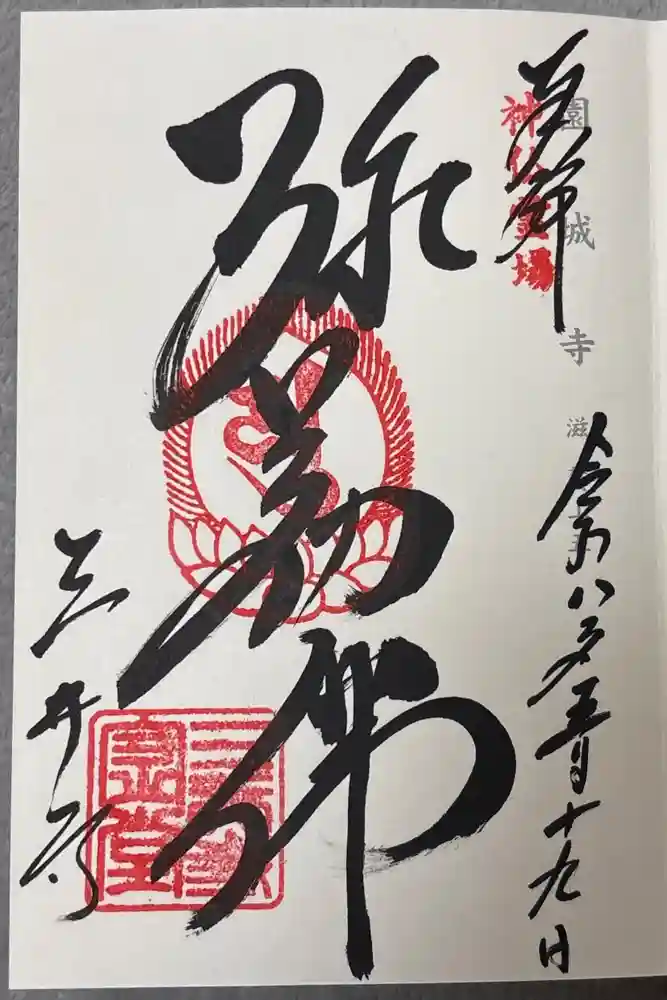 奉拝
神仏霊場
園城寺 滋
令和八年五月十九日
弥勒佛
三井寺